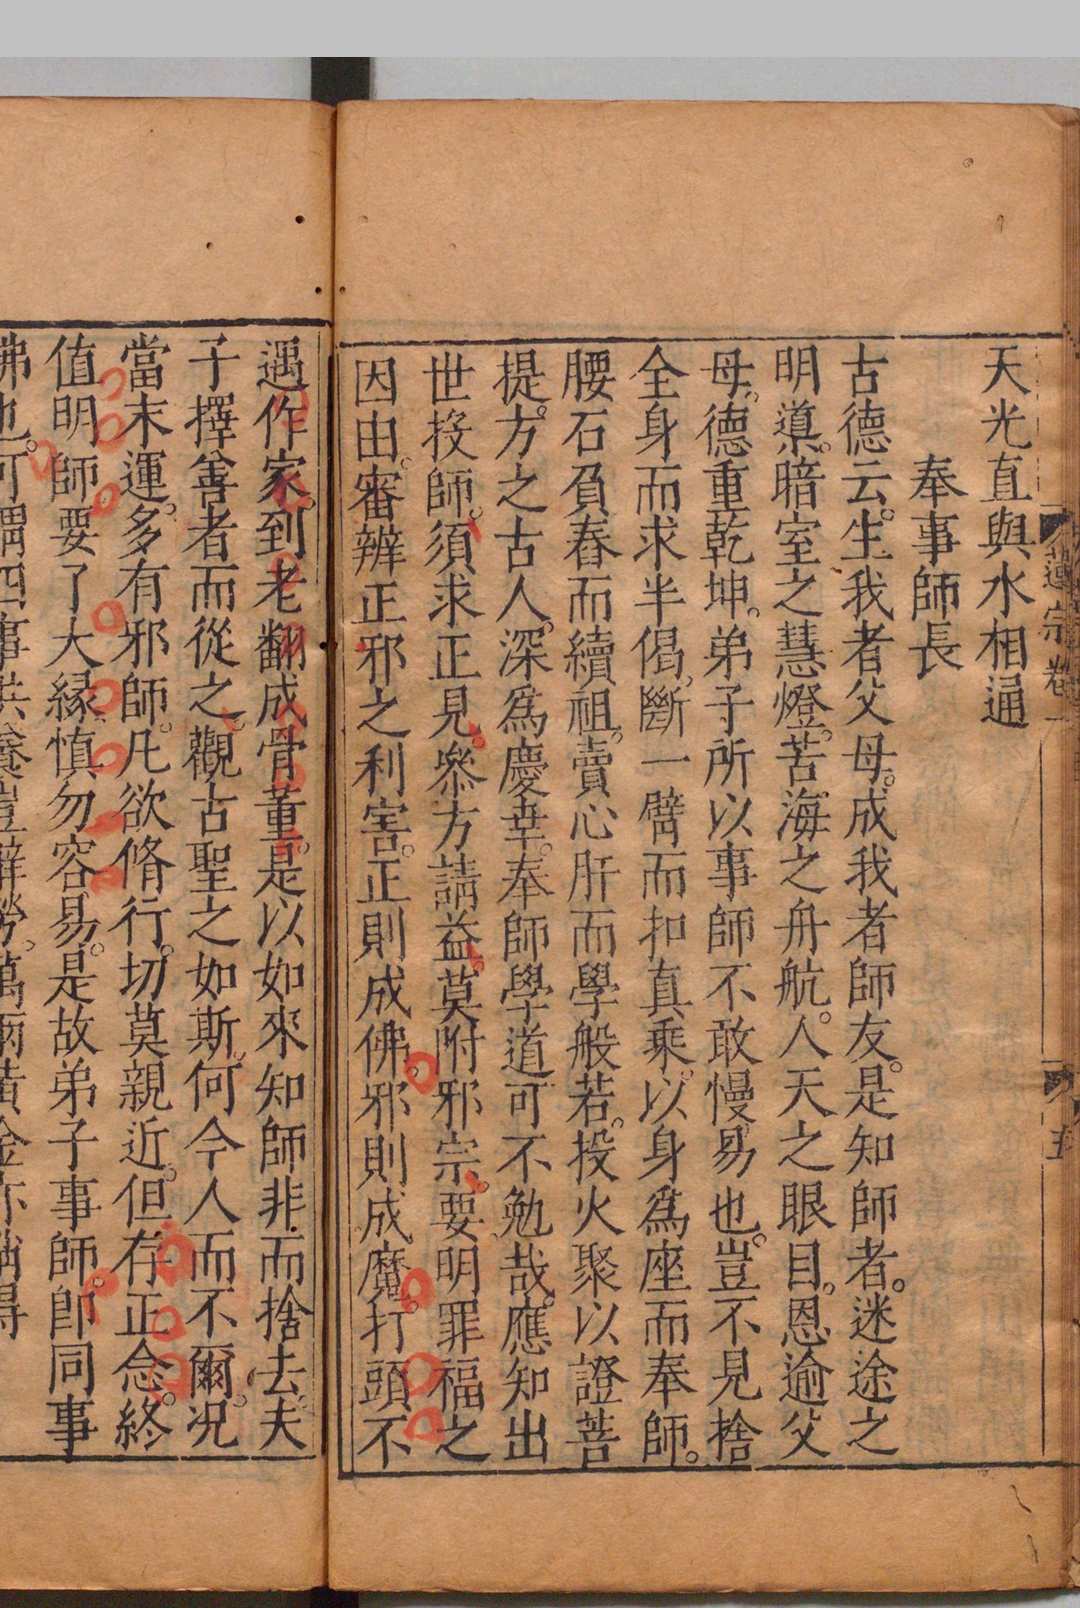 蓮宗卷一
五
天光直與水相通
奉事師長
古德云。生我者父母。成我者師友。是知師者。迷途之
明導。暗室之慧燈。苦海之舟航。人天之眼目。恩逾父
母。德重乾坤。弟子所以事師不敢慢易也。豈不見捨
全身而求半偈。斷一臂而扣真乘。以身為座而奉師。
腰石負舂而續祖。賣心肝而學般若。投火聚以證菩
提。方之古人。深為慶幸。奉師學道可不勉哉。應知出
世投師。須求正見。參方請益。莫附邪宗。要明罪福之
因由。審辨正邪之利害。正則成佛。邪則成魔。打頭不
遇作家。到老翻成骨董。是以如來知師非而捨去。夫
子擇善者而從之。觀古聖之如斯。何今人而不爾。况
當末運。多有邪師。凡欲脩行。切莫親近。但存正念。終
值明師。要了大緣。慎勿容易。是故弟子事師。即同事
佛也。可謂四事供養豈辭勞。萬兩黃金亦銷得